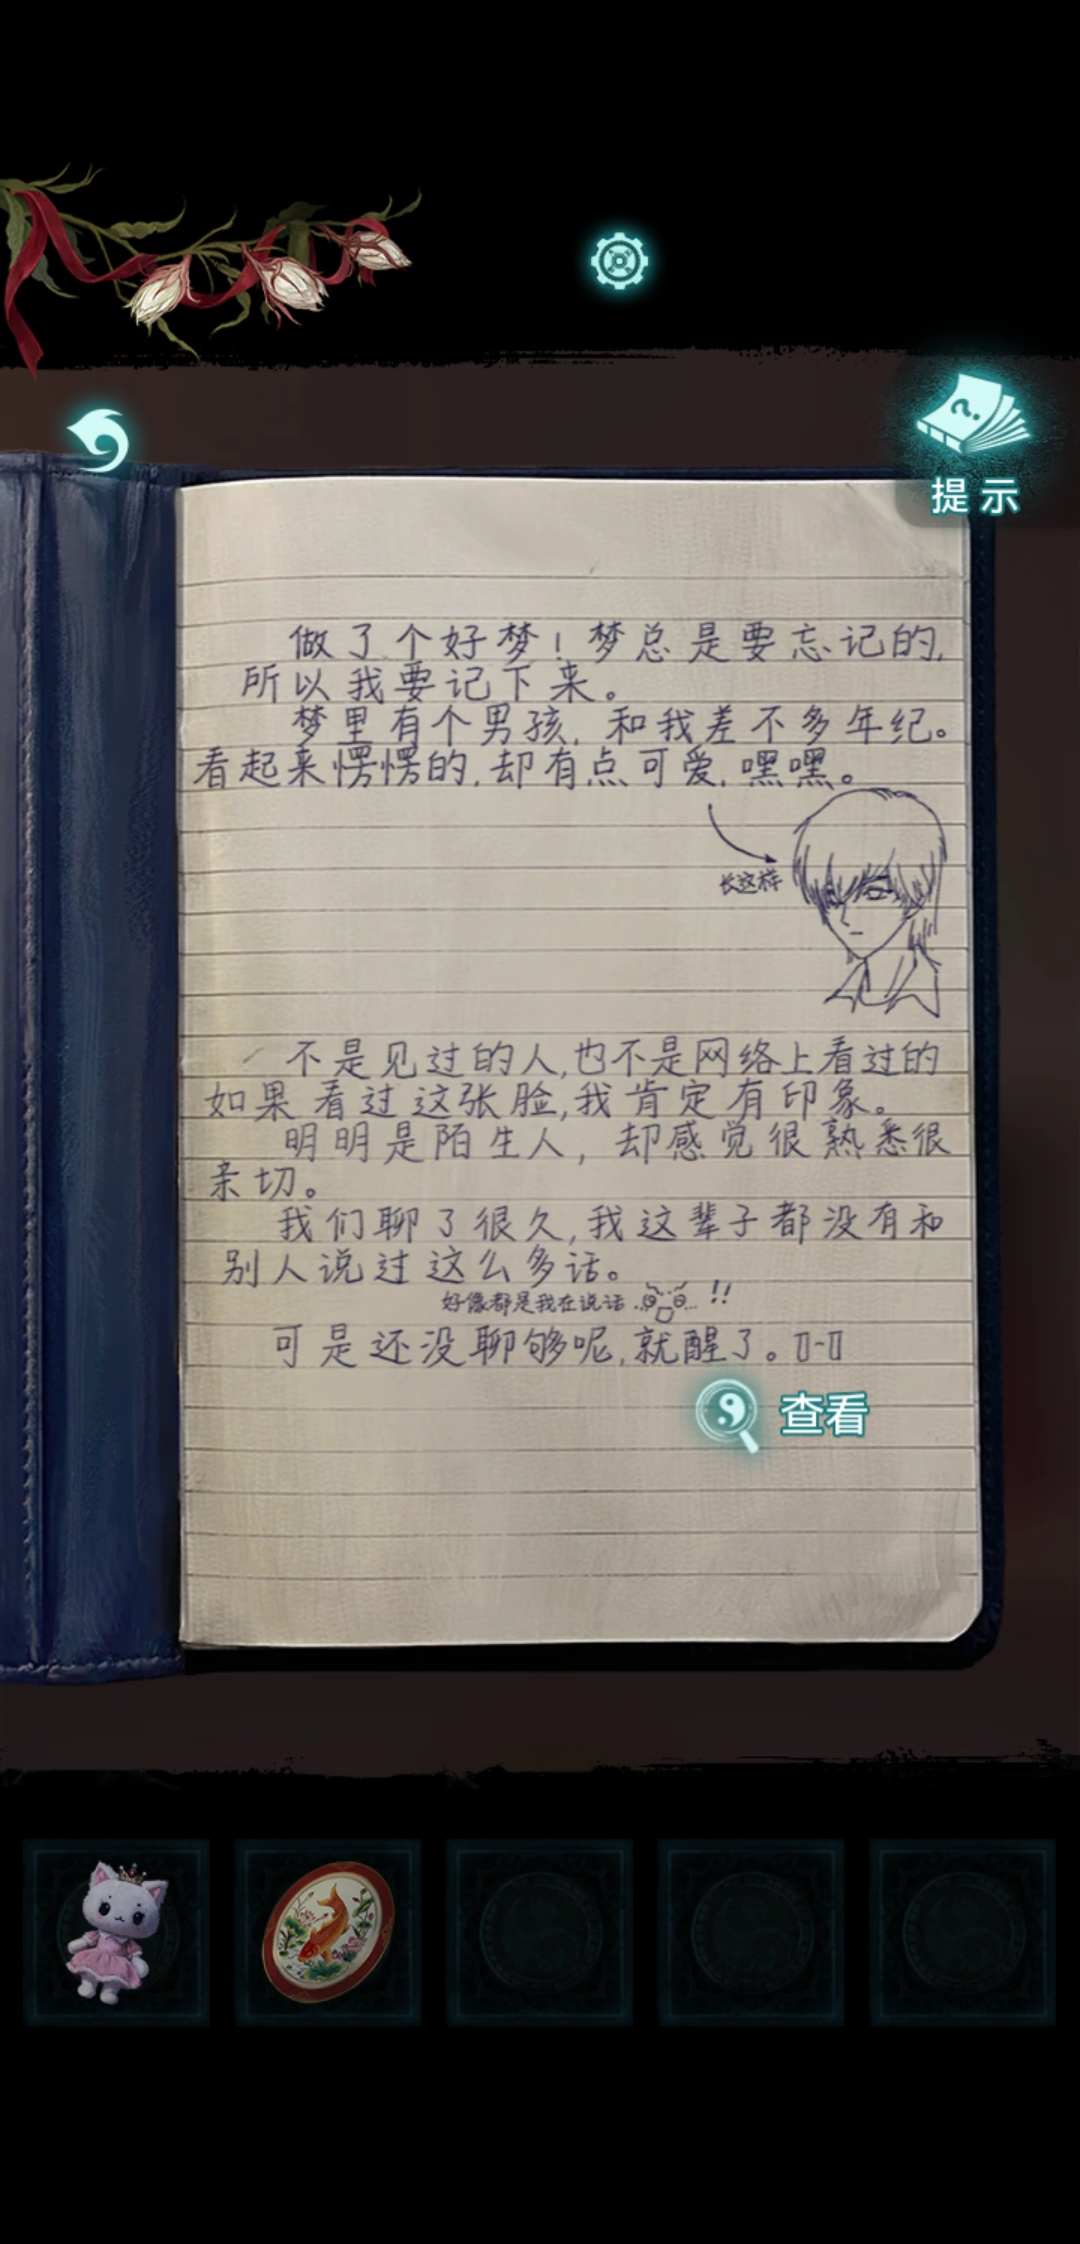 提示
做了个好梦！梦总是要忘记的，
所以我要记下来。
梦里有个男孩，和我差不多年纪。
看起来愣愣的，却有点可爱，嘿嘿。
长这样
不是见过的人，也不是网络上看过的
如果看过这张脸，我肯定有印象。
明明是陌生人，却感觉很熟悉很
亲切。
我们聊了很久，我这辈子都没有和
别人说过这么多话。
好像都是我在说话 !!
可是还没聊够呢，就醒了。π-π
查看